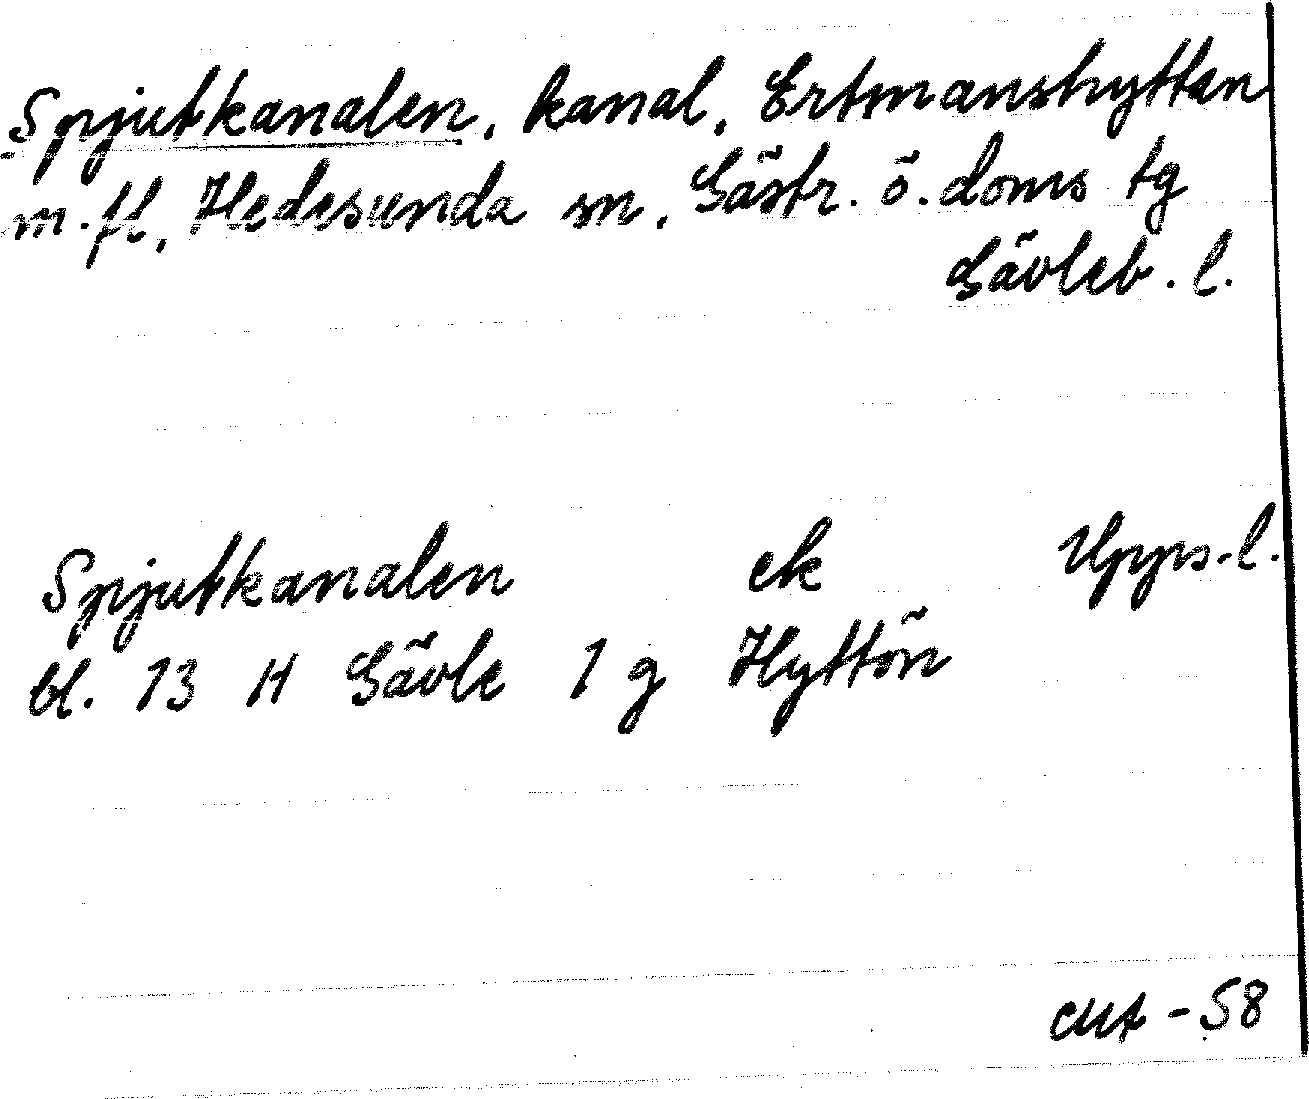 Spjutkanalen, kanal, Ertmanshyttan
m.fl, Hedesunda sn, Gästr. ö. doms tg
Gävleb. l.
Spjutkanalen ek Upps. l.
bl. 13 H Gävle 1 g Hyttön
-58